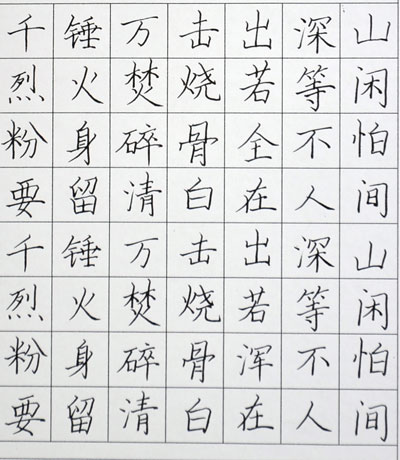 千锤万击出深山
烈火焚烧若等闲
粉身碎骨全不怕
要留清白在人间
千锤万击出深山
烈火焚烧若等闲
粉身碎骨浑不怕
要留清白在人间